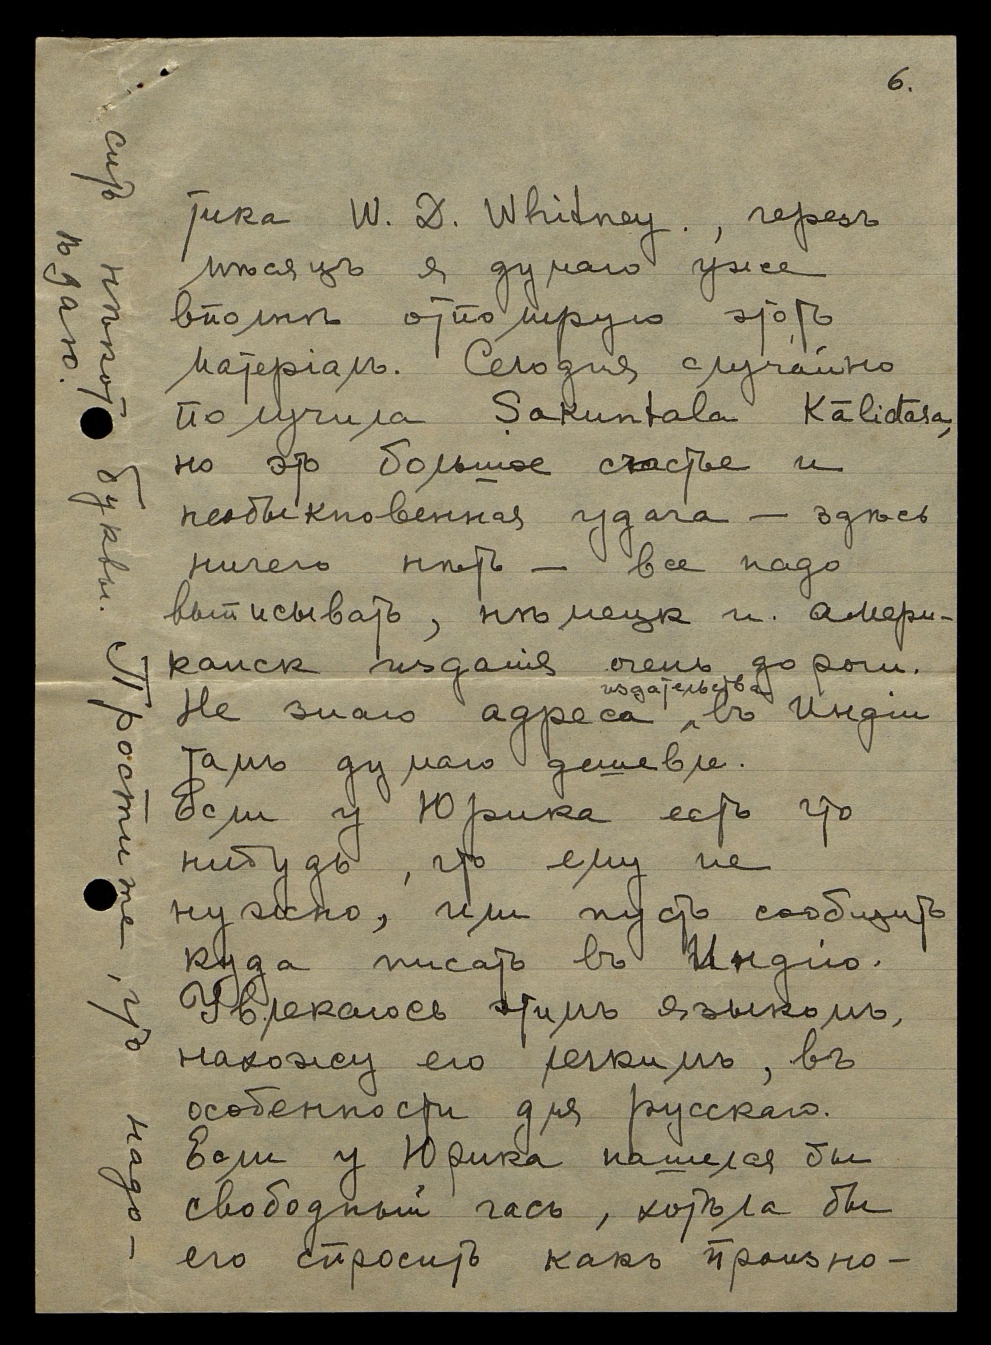 6.
тика W. D. Whitney., черезъ
мѣсяцъ я думаю уже
вполнѣ отполирую этотъ
матеріалъ. Сегодня случайно
получила Ṣakuntala Kālidāsa,
но это большое счастье и
необыкновенная удача — здѣсь
ничего нѣтъ — все надо
выписывать, нѣмецк и. амери-
канск изданія очень дороги.
Не знаю адреса издательства въ Индіи
тамъ думаю дешевле.
Если у Юрика есть что
нибудь, что ему не
нужно, или пусть сообщитъ
куда писать въ Индію.
Увлекаюсь этимъ языкомъ,
нахожу его легкимъ, въ
особенности для русскаго.
Если у Юрика нашелся бы
свободный часъ, хотѣла бы
его спросить какъ произно-
сить нѣкот буквы. Простите, что надо-
ѣдаю.